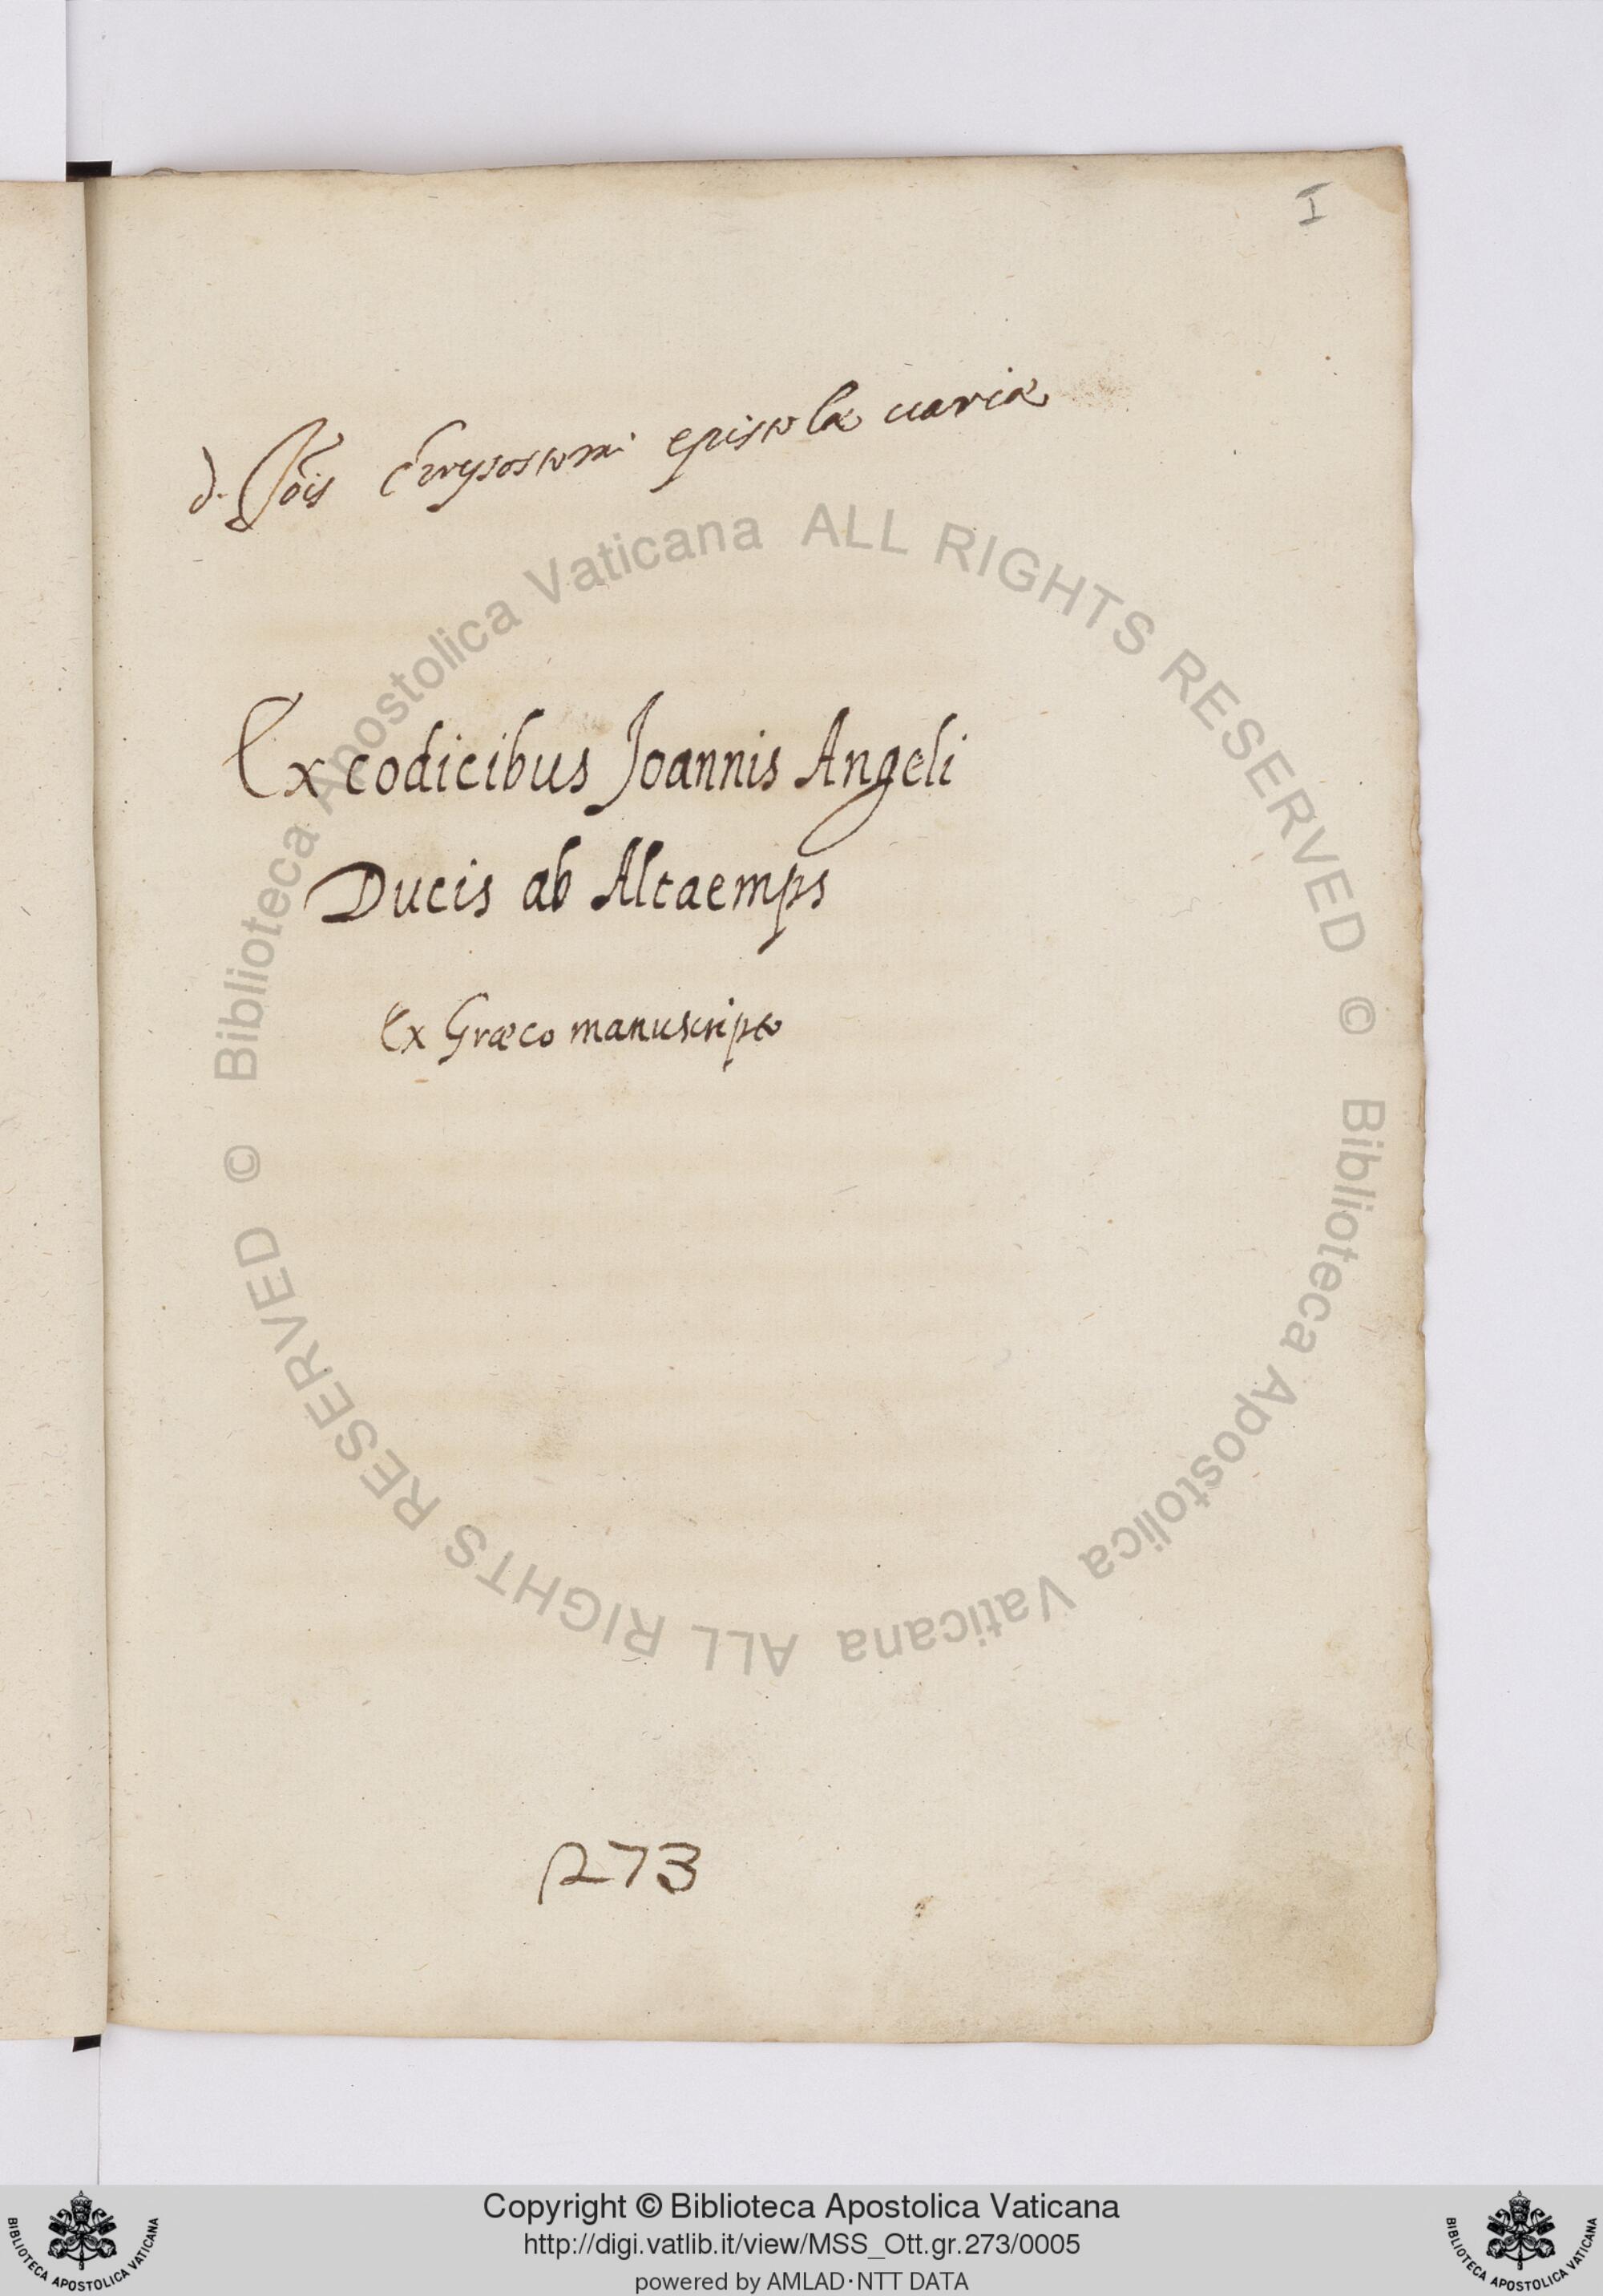 I
d. Jõis Chrysostomi epistolæ uariæ
Ex codicibus Joannis Angeli
Ducis ab Altaemps
Ex Græco manuscripto
273
© Biblioteca Apostolica Vaticana ALL RIGHTS RESERVED
© Biblioteca Apostolica Vaticana ALL RIGHTS RESERVED
Copyright © Biblioteca Apostolica Vaticana
http://digi.vatlib.it/view/MSS_Ott.gr.273/0005
powered by AMLAD·NTT DATA
BIBLIOTECA APOSTOLICA VATICANA
BIBLIOTECA APOSTOLICA VATICANA